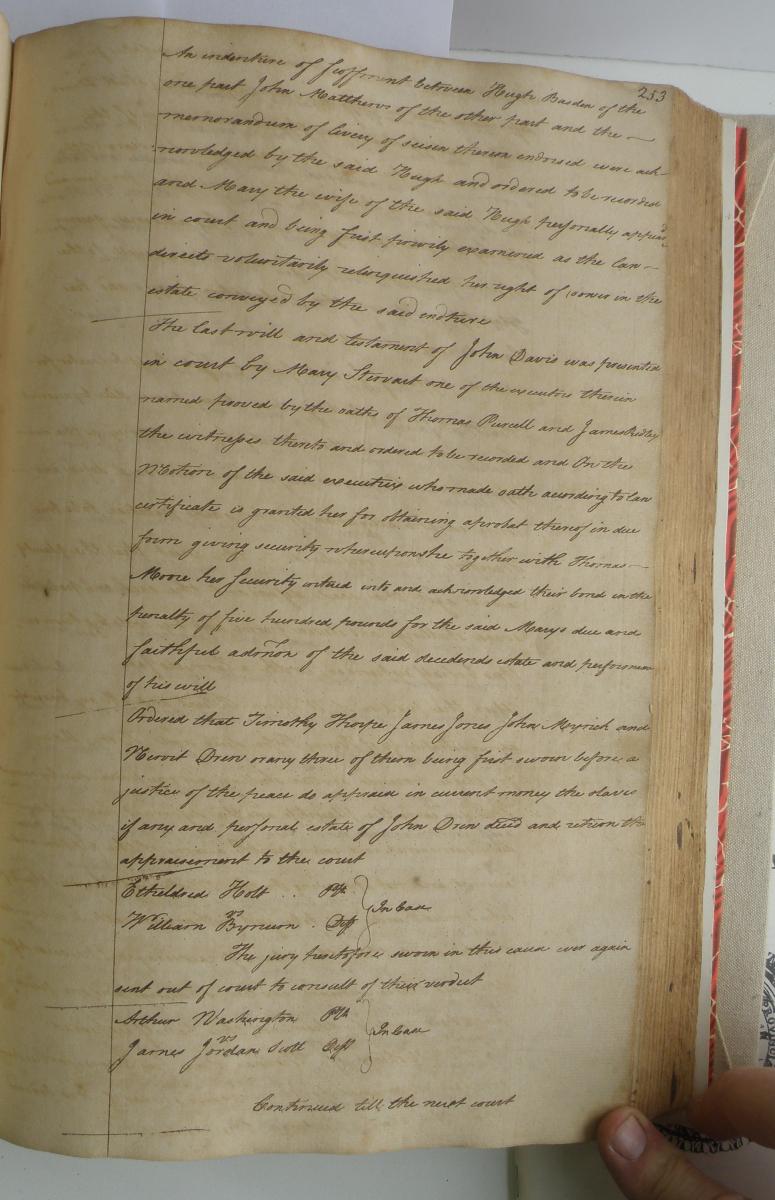 253
An indenture of feoffment between Hugh Basden of the
one part John Matthews of the other part and the —
memorandum of livery of seisen thereon endorsed were ack-
nowledged by the said Hugh and ordered to be recorded
and Mary the wife of the said Hugh personally appeard
in court and being first privily examined as the law —
directs voluntarily relinquished her right of dower in the
estate conveyed by the said indture
The last will and testament of John Davis was presented
in court by Mary Stewart one of the executrs therein
named prooved by the oaths of Thomas Purcell and James Ridley
the witnesses thereto and ordered to be recorded and On the
Motion of the said executrix who made oath according to law
certificate is granted her for obtaining a probat thereof in due
form giving security whereupon she together with Thomas —
Moore her security entred into and acknowledged their bond in the
penalty of five hundred pounds for the said Marys due and
faithful admon of the said decedends estate and performan
of his will
Ordered that Timothy Thorpe James Jones John Myrick and
Drew or any three of them being first sworn before a
justice of the peace do appraid in current money the slaves
if any and personal estate of John Drew decd and return the
appraisement to the court
Etheldred Holt .. Plt
vs } In Case
William Bynum . Deft
The jury heretofore sworn in this cause ever again
sent out of court to consult of their verdict
Arthur Washington Plt
vs } In Case
James Jordan Scott Deft
Continued till the next court